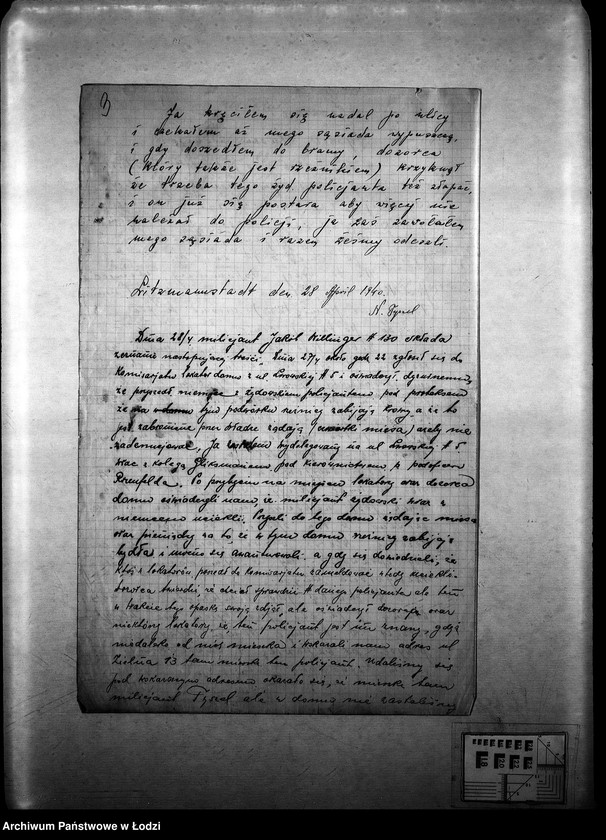 3
Ja kręciłem się nadal po ulicy
i czekałem aż mego sąsiada wypuszczą,
i gdy doszedłem do bramy, dozorca
(który także jest rzeźnikiem) krzyknął
że trzeba tego żyd. policjanta też złapać,
i on już się postara aby więcej nie
należał do policji, ja zaś zawołałem
mego sąsiada i razem żeśmy odeszli.
Litzmannstadt den 28 April 1940.
Dnia 28/4 milicjant Jakób # 130 składa
zeznanie następującej treści. Dnia 27/4 około godz 22 zgłosił się do
Komisarjatu lokator domu z ul. # 5 i oświadczył dyżurnemu,
że przyszedł niemiec z żydowskim policjantem pod pretekstem
że na tym podwórku rzeźnicy zabijają krowy a że to
jest zabronione przez władze żądają mięsa) ażeby nie
Ja wydelegowany na ul. # 5
wraz z kolegą Gliksmanem, pod kierownictwem p.
Rozenfelda. Po przybyciu na miejsce lokatorzy oraz dozorca
domu oświadczyli nam, że milicjant żydowski wraz z
niemcem uciekli. Przyszli do tego domu żądając mięsa
oraz pieniędzy za to, że w tym domu rzeźnicy zabijają
bydła i a gdy się dowiedzieli, że
ktoś z lokatorów poszedł do Komisarjatu zameldować wtedy uciekli.
Dozorca twierdzi, że chciał sprawdzić # danego policjanta ale ten
w trakcie tego opaskę swoją zdjął, ale oświadczył dozorca oraz
niektórzy lokatorzy, że ten policjant jest im znany, gdyż
niedaleko od nich mieszka i wskazali nam adres ul.
Zielna 13 tam mieszka ten policjant. Udaliśmy się
pod wskazanym adresem okazało się, że mieszka tam
milicjant Tyszel ale w domu nie zastaliśmy
18
20
22
Archiwum Państwowe w Łodzi